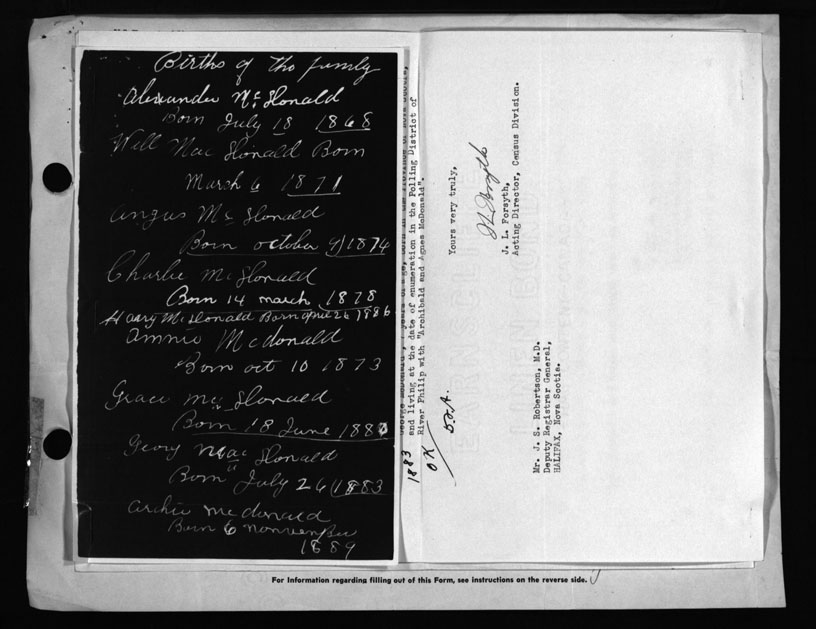 Births of the family
Alexander Mc Donald
Born July 18 1868
Will Mac Donald Born
Marsh 6 1871
Angus Mc Donald
Born october 9 1874
Charlie Mc Donald
Born 14 march 1878
Harry Mc Donald Born april 26 1886
Annie Mc donald
Born oct 10 1873
Grace Mc Donald
Born 18 June 1880
Georg Mac Donald
Born July 26 1883
archie mc donald
Born 6 nonvember
1889
and living at the date of enumeration in the Polling District of
River Philip with "Archibald and Agnes McDonald".
1883
OK
Yours very truly,
J. L. Forsyth,
Acting Director, Census Division.
Mr. J. S. Robertson, M.D.
Deputy Registrar General,
HALIFAX, Nova Scotia.
For Information regarding filling out of this Form, see instructions on the reverse side.